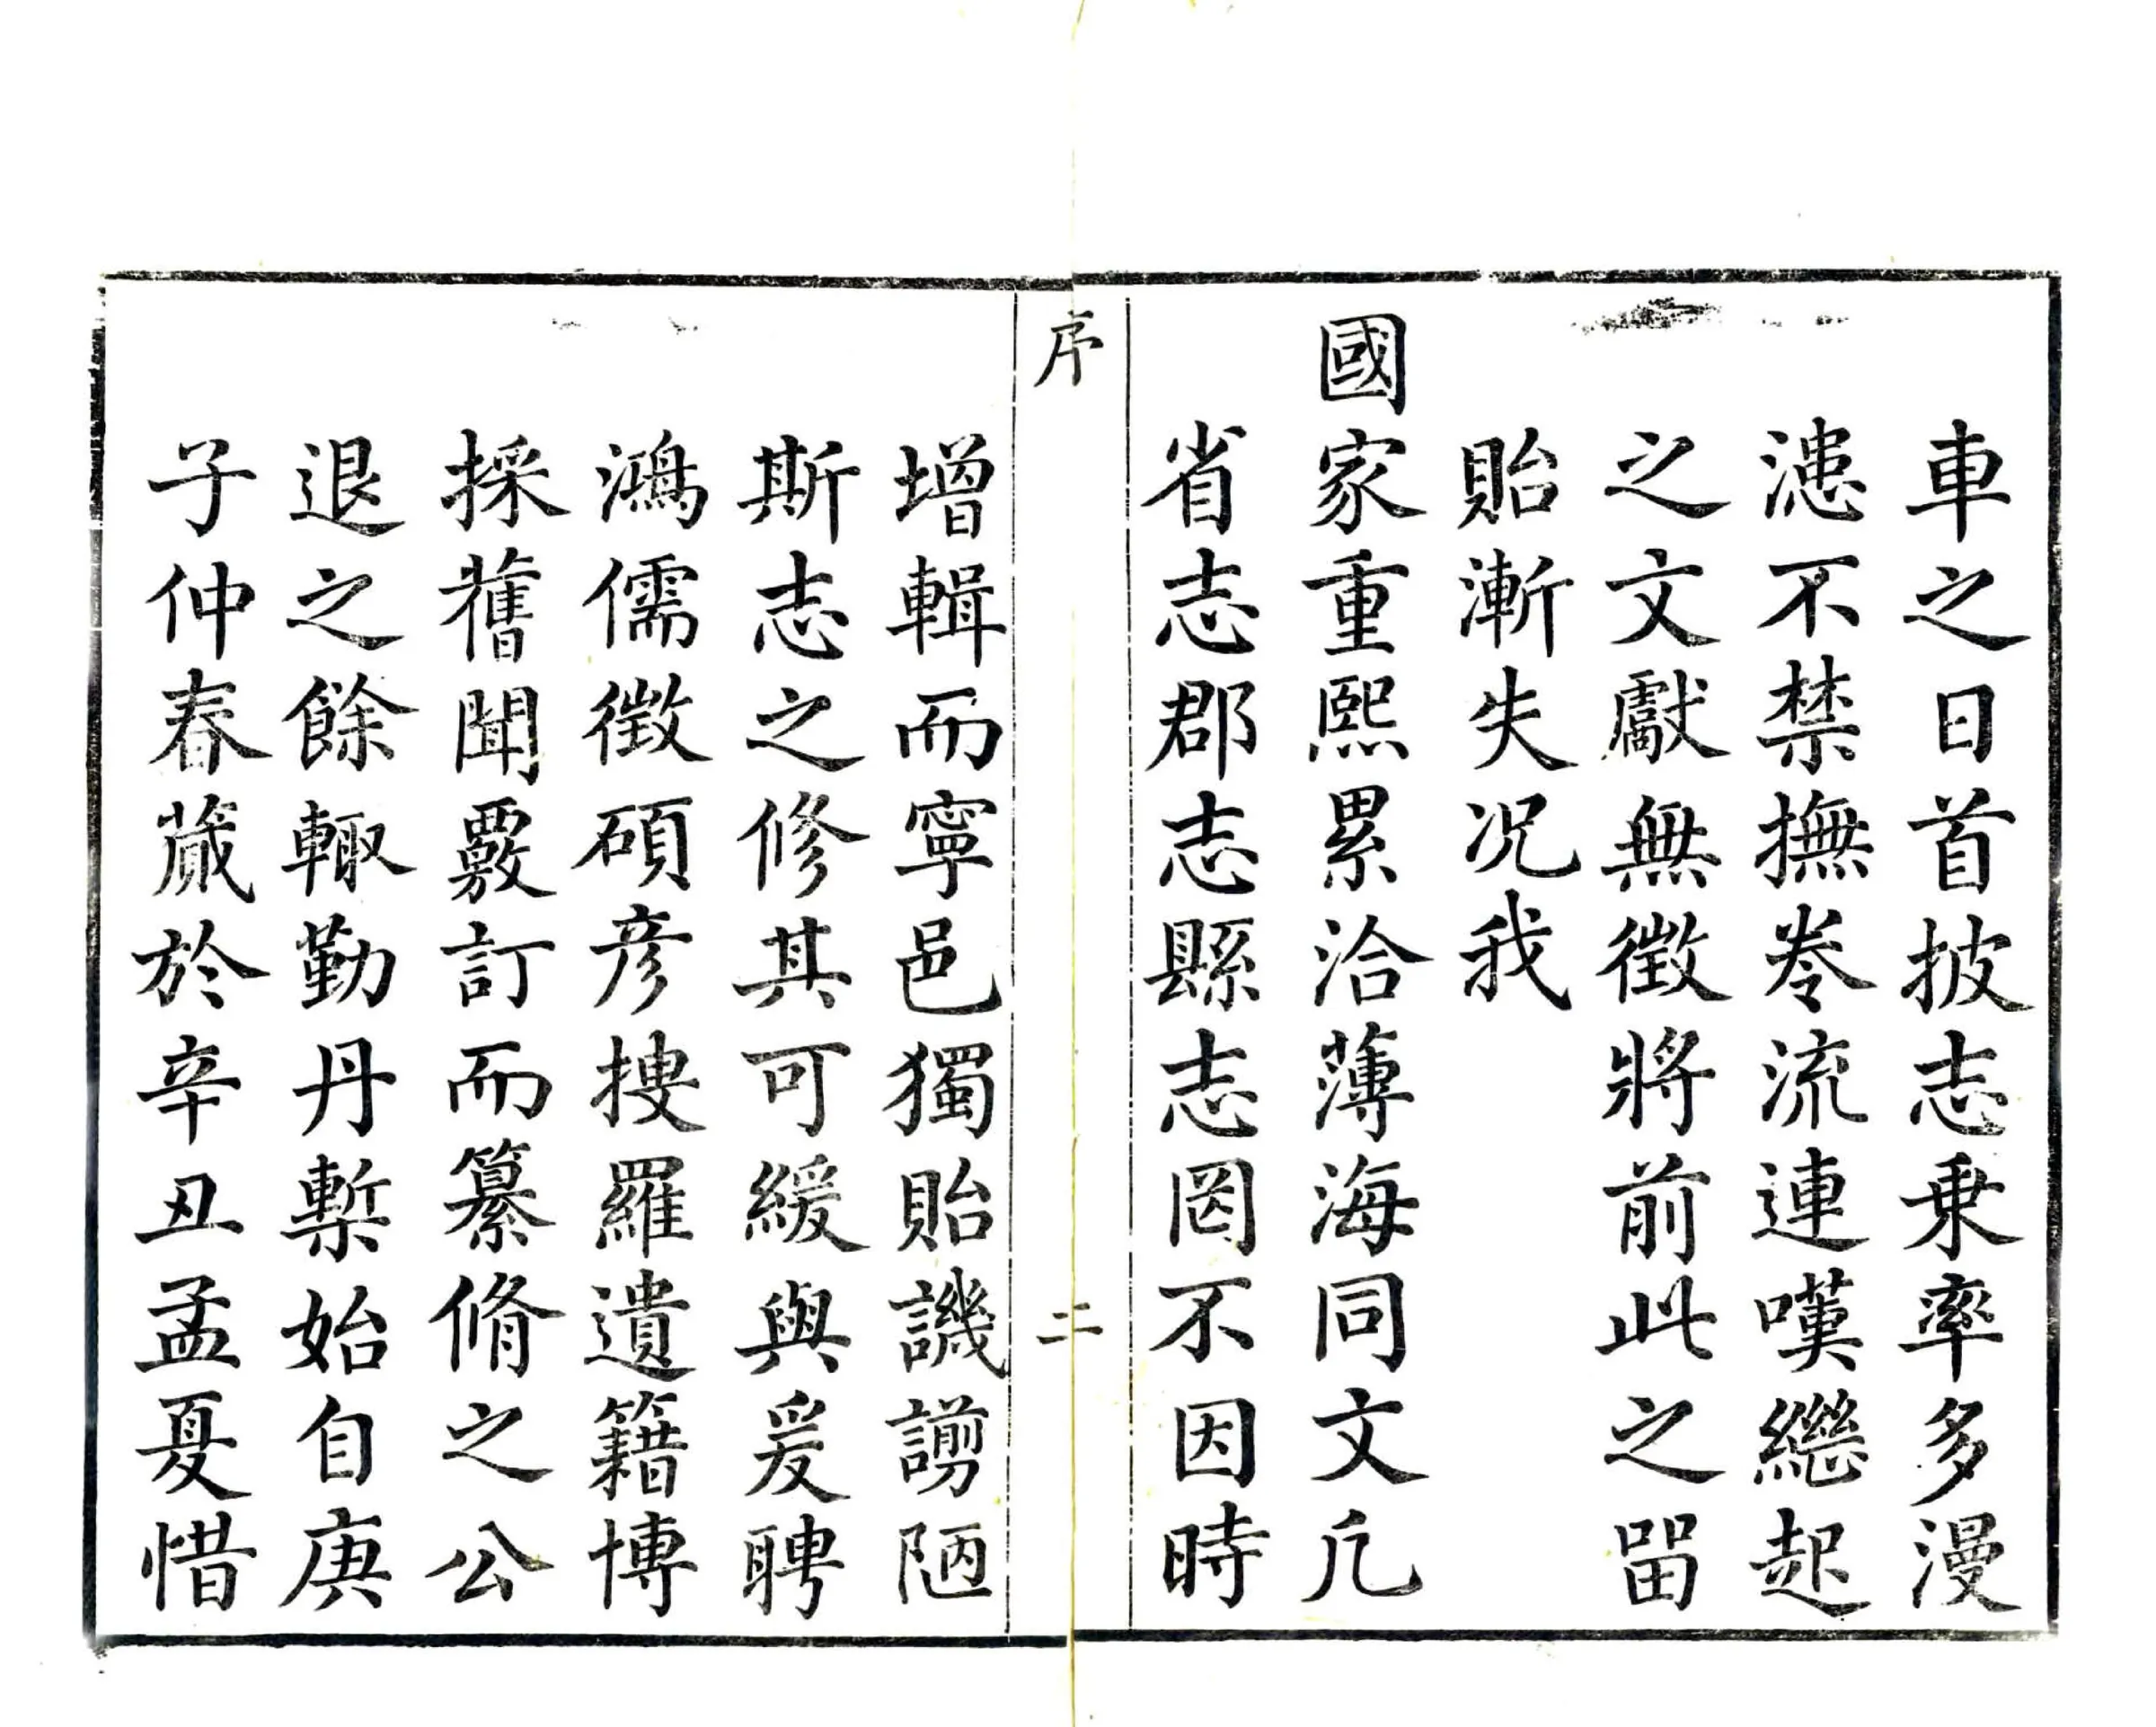 車之日首披志乗率多漫
漶不禁撫卷流連嘆繼起
之文獻無徴將前此之畱
貽漸失况我
國家重熙累洽薄海同文凢
省志郡志縣志罔不因時
序
二
增輯而寧邑獨貽譏謭陋
斯志之修其可緩與爰聘
鴻儒徴碩彦搜羅遺籍博
採舊聞覈訂而纂脩之公
退之餘輙勤丹槧始自庚
子仲春蕆於辛丑孟夏惜